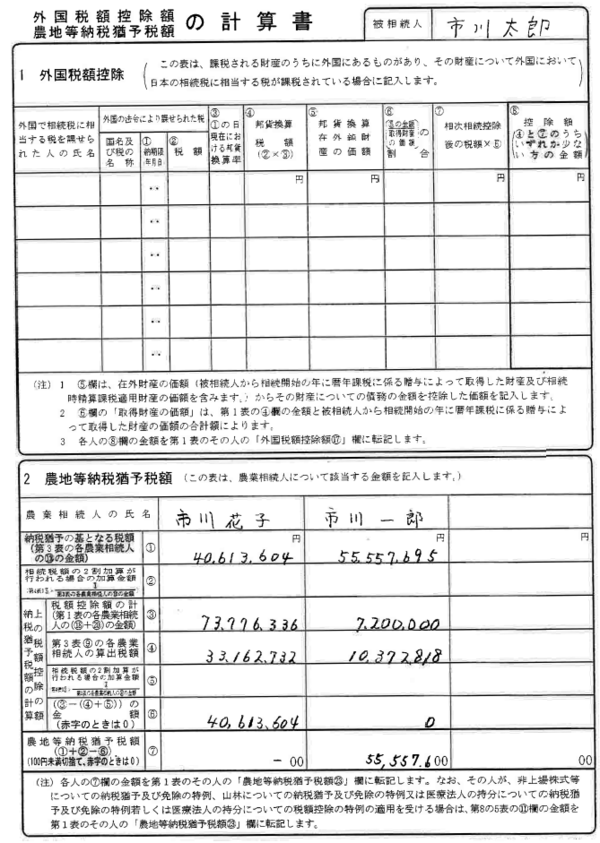 外国税額控除額
農地等納税猶予税額 の計算書
被相続人 市川太郎
1 外国税額控除
(この表は、課税される財産のうちに外国にあるものがあり、その財産について外国において
日本の相続税に相当する税が課税されている場合に記入します。)
外国で相続税に相当する税を課せられた人の氏名
外国の法令により課せられた税
国名及び税の名称
① 納期限(年月日)
② 税額
③ ①の日現在における邦貨換算率
④ 邦貨換算税額(②×③)
⑤ 邦貨換算在外純財産の価額
⑥ ⑤の金額/取得財産の価額の割合
⑦ 相次相続控除後の税額×⑥
⑧ 控除額(④と⑦のうちいずれか少ない方の金額)
・・ 円 円 円 円
・・
・・
・・
・・
・・
(注) 1 ⑤欄は、在外財産の価額(被相続人から相続開始の年に暦年課税に係る贈与によって取得した財産及び相続
時精算課税適用財産の価額を含みます。)からその財産についての債務の金額を控除した価額を記入します。
2 ⑥欄の「取得財産の価額」は、第1表の④欄の金額と被相続人から相続開始の年に暦年課税に係る贈与によ
って取得した財産の価額の合計額によります。
3 各人の⑧欄の金額を第1表のその人の「外国税額控除額⑰」欄に転記します。
2 農地等納税猶予税額 (この表は、農業相続人について該当する金額を記入します。)
農業相続人の氏名 市川花子 市川一郎
納税猶予の基となる税額
(第3表の各農業相続人
の⑬の金額) ① 40,613,604円 55,557,695円 円
相続税額の2割加算が
行われる場合の加算金額 ②
納税猶予税額の計算
税額控除額の計
(第1表の各農業相続
人の(⑱+⑳)の金額) ③ 73,776,336 7,200,000
第3表⑨の各農業
相続人の算出税額 ④ 33,162,732 10,372,818
相続税額の2割加算が
行われる場合の加算金額 ⑤
(③-(④+⑤))の
金額
(赤字のときは0) ⑥ 40,613,604 0
農地等納税猶予税額
(①+②-⑥)
(100円未満切捨て、赤字のときは0) ⑦ -00 55,557,600 00
(注) 各人の⑦欄の金額を第1表のその人の「農地等納税猶予税額㉓」欄に転記します。なお、その人が、非上場株式等
についての納税猶予及び免除の特例、山林についての納税猶予及び免除の特例又は医療法人の持分についての納税猶
予及び免除の特例若しくは医療法人の持分についての税額控除の特例の適用を受ける場合は、第8の5表の⑪欄の金額を
第1表のその人の「農地等納税猶予税額㉓」欄に転記します。